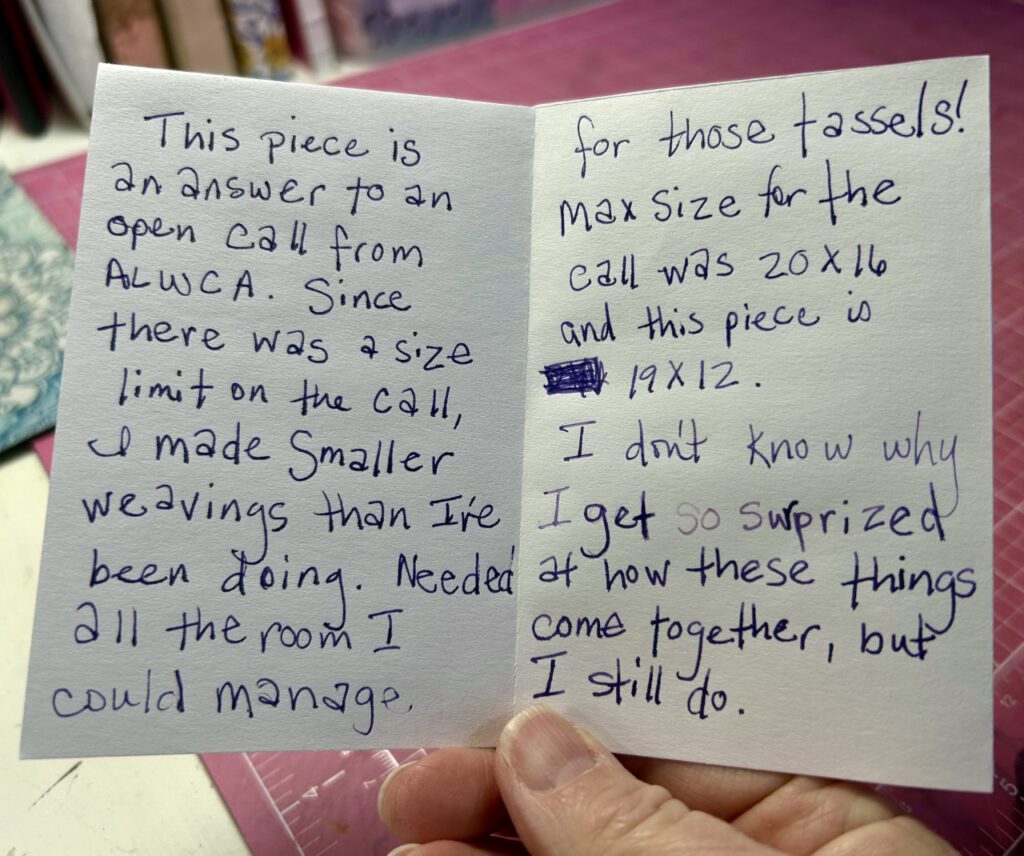 This piece is
an answer to an
open call from
ALWCA. Since
there was a size
limit on the call,
I made smaller
weavings than I've
been doing. Needed
all the room I
could manage.
for those tassels!
max size for the
call was 20x16
and this piece is
19x12.
I don't know why
I get so surprized
at how these things
come together, but
I still do.